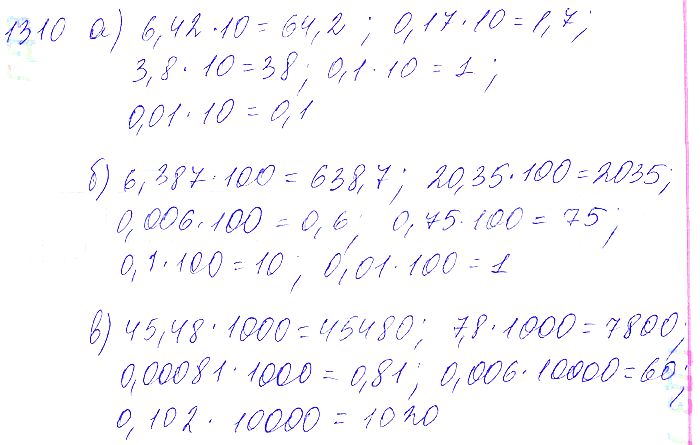 1310 а) 6,42·10=64,2; 0,17·10=1,7;
3,8·10=38; 0,1·10=1;
0,01·10=0,1
б) 6,387·100=638,7; 20,35·100=2035;
0,006·100=0,6; 0,75·100=75;
0,1·100=10; 0,01·100=1
в) 45,48·1000=45480; 7,8·1000=7800;
0,00081·1000=0,81; 0,006·10000=60;
0,102·10000=1020